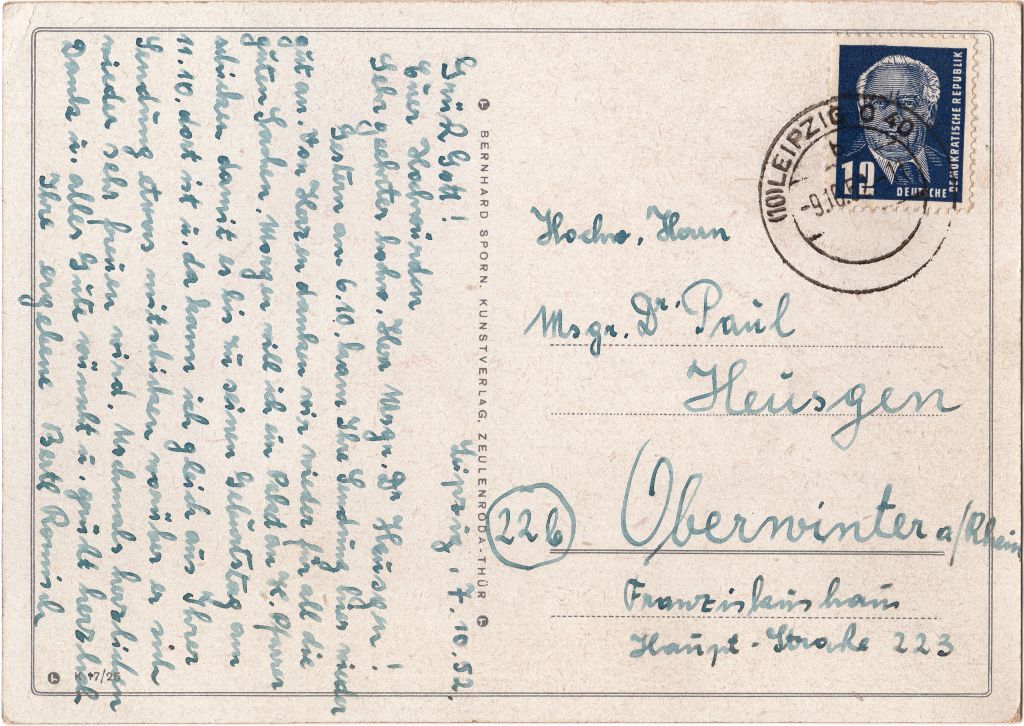 Leipzig, 7.10.52.
Grüß Gott!
Euer Hochwürden
Sehr geehrter hochw. Herr Msgr. Dr. Heusgen!
Gestern am 6.10. kam Ihre Sendung hier wieder
gut an. Von Herzen danken wir wieder für all die
guten Sachen. Morgen will ich ein Paket an H. Pfarrer
schicken damit es bis zu seinen Geburtstag am
11.10. dort ist u. da kann ich gleich aus Ihrer
Sendung etwas mitschicken worüber er sich
wieder sehr freuen wird. Nochmals herzlichen
Dank u. alles Gute wünscht u. grüßt herzlich
Ihre ergebene Bertl
BERNHARD SPORN, KUNSTVERLAG, ZEULENRODA-THÜR
K 17/25
DEUTSCHE
DEMOKRATISCHE REPUBLIK
12
(10) LEIPZIG O 40
-9.10.5
Hochw. Herrn
Msgr. Dr. Paul
Heusgen
22b
Oberwinter a/Rhein
Franziskushaus
Haupt-Straße 223